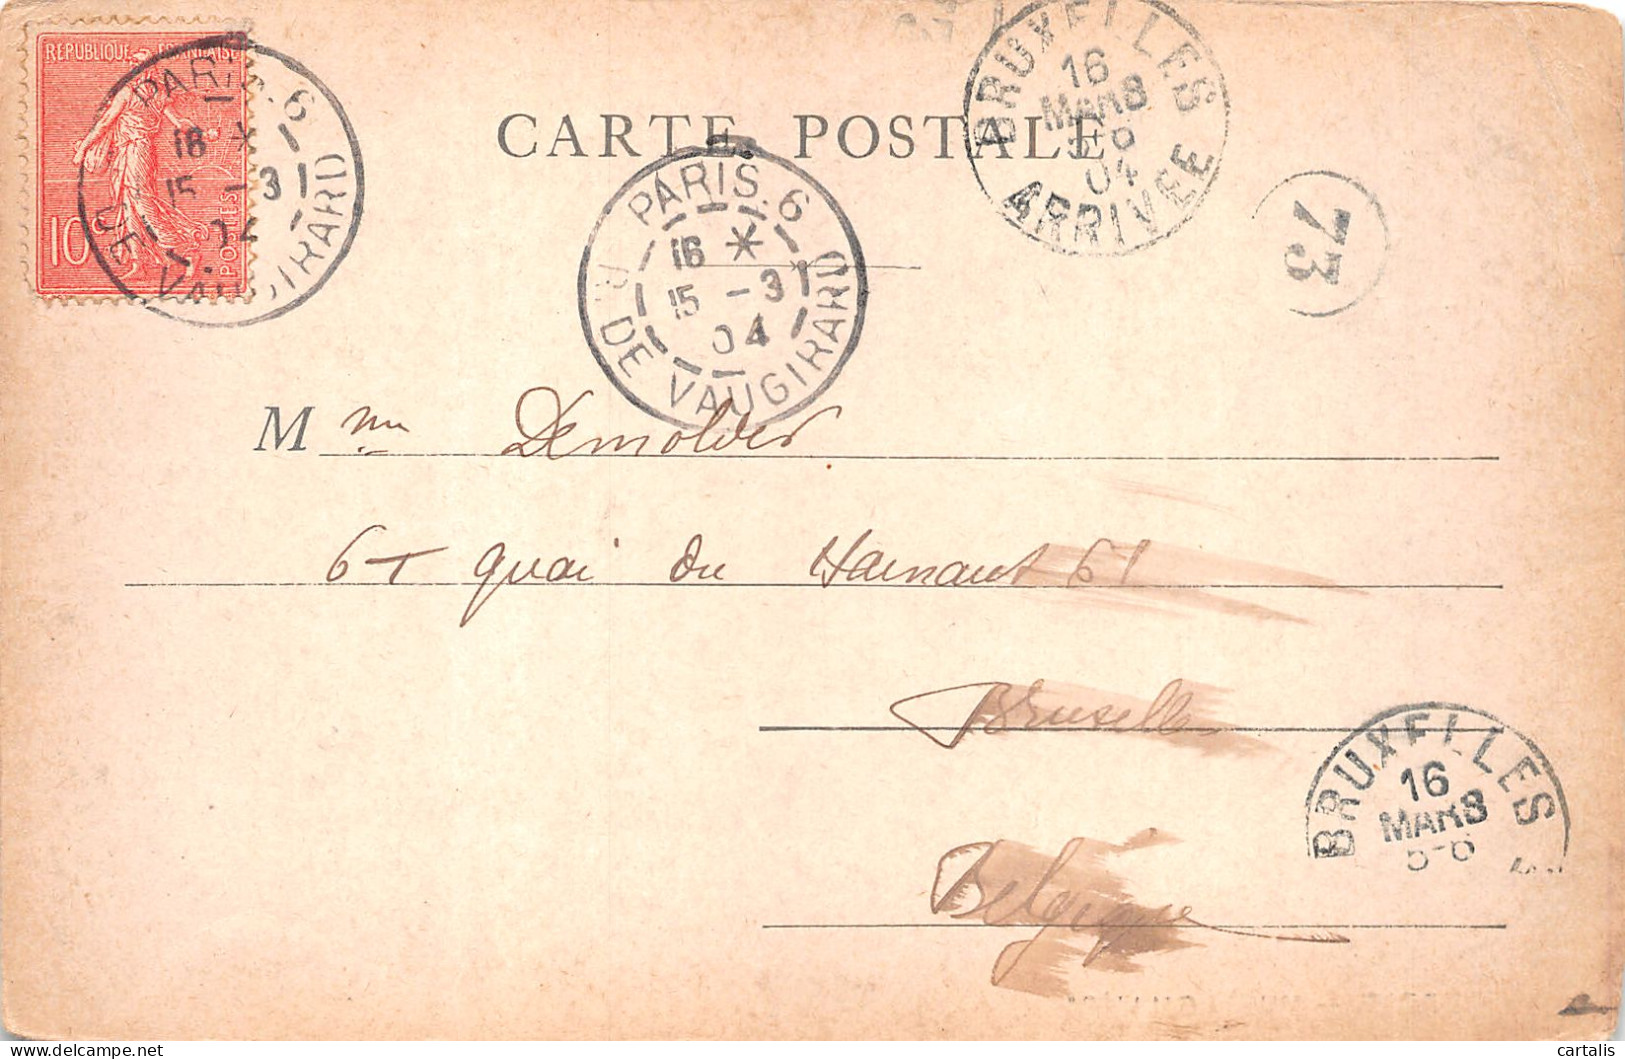 REPUBLIQUE FRANÇAISE
10
POSTES
PARIS. 6
16 *
15 - 3
04
DE VAUGIRARD
CARTE POSTALE
PARIS. 6
16 *
15 - 3
04
R. DE VAUGIRARD
BRUXELLES
16
MARS
04
ARRIVEE
73
Mme Demolder
61 quai du Hainaut 61
Bruxelles
Belgique
BRUXELLES
16
MARS
5-6
cartalis
delcampe.net